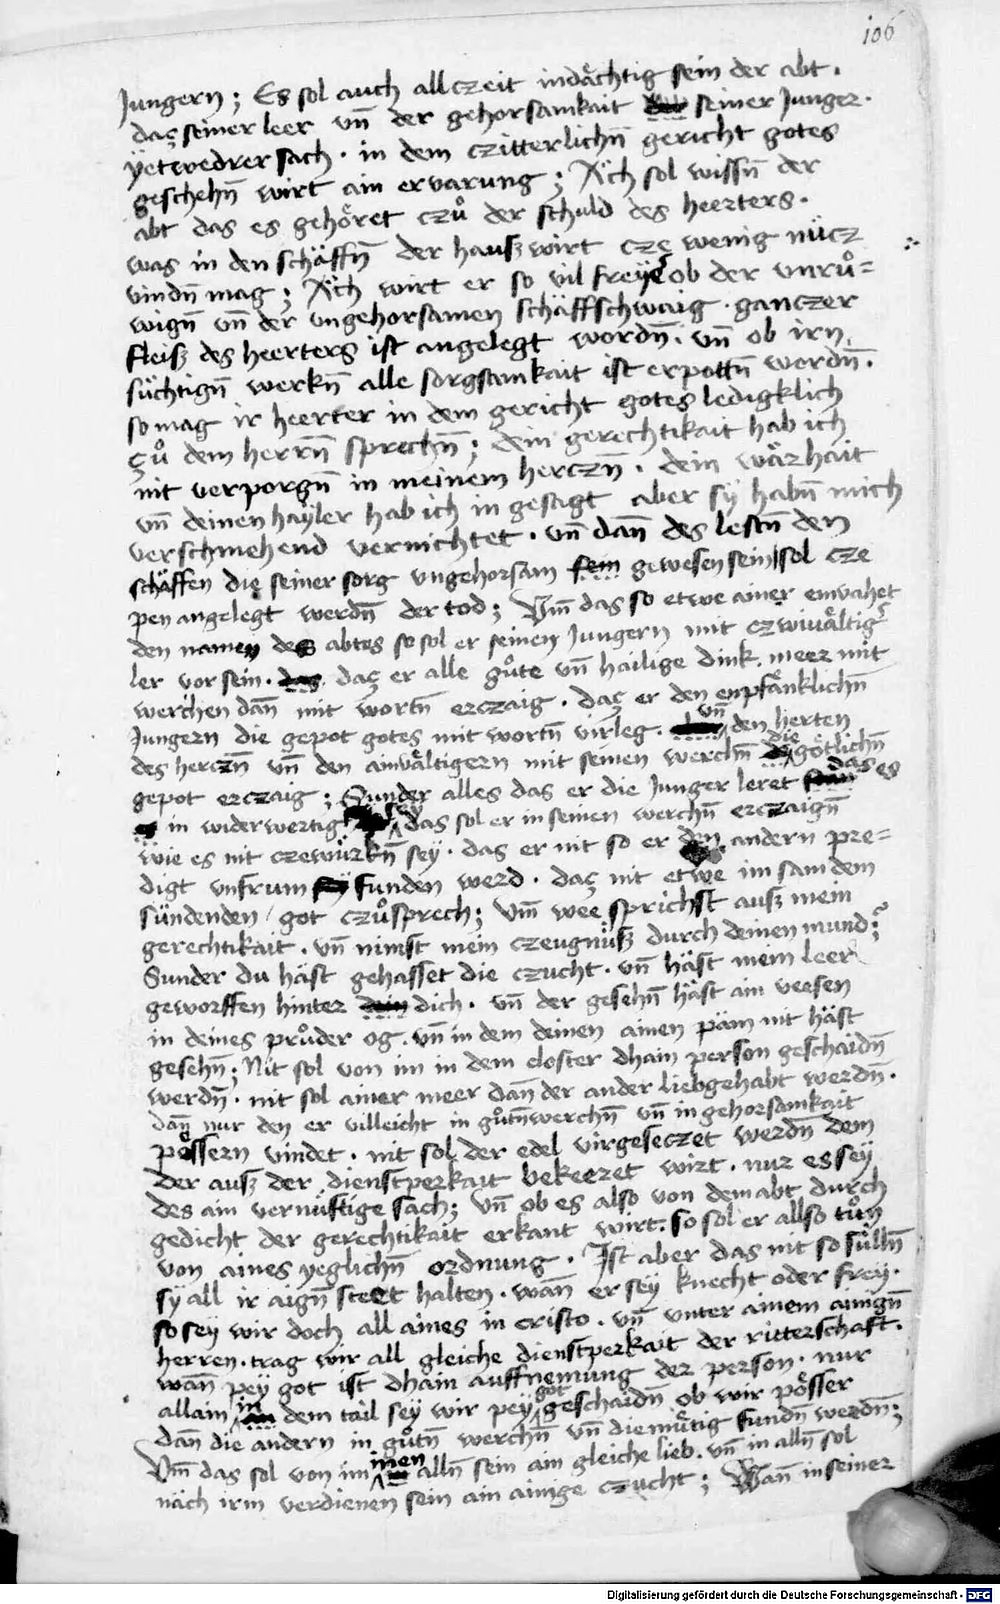 106
Jungern; Es sol auch allczeit indächtig sein der abt.
daz seiner leer vn̄ der gehorsamkait seiner Junger.
ÿetwedrer sach. in dem czitterlichn̄ gericht gotes
geschehn̄ wirt ain ervarung; Äch sol wissn̄ der
abt das es gehöret czů der schuld des heerters.
was in den schäffn̄ der hauszwirt cze wenig nücz
vindn̄ mag; Äch wirt er so vil freÿer ob der vnrů=
wign̄ vn̄ der vngehorsamen schäffschwaig. ganczer
fleisz des heerters ist angelegt wordn̄. vn̄ ob irn
süchtign̄ werkn̄ alle sorgsamkait ist erpottn̄ wordn̄.
so mag ir heerter in dem gericht gotes ledigklich
çů dem herrn̄ sprechn̄; dein gerechtikait hab ich
nit verporgn̄ in meinem herczn̄. dein wärhait
vn̄ deinen haÿler hab ich in gesagt aber sÿ habn̄ mich
verschmehend vernichtet. vn̄ dan̄ des lestn̄ den
schäffen die seiner sorg vngehorsam sein gewesen sein sol cze
pen angelegt werdn̄ der tod; Vm̄ das so etwe ainer emvahet
den namen des abtes so sol er seinen Jungern mit czwiuältiger
ler vor sein. das daz er alle gůte vn̄ hailige dink. meer mit
werchen dan̄ mit wortn̄ erczaig. daz er den enpfänklichn̄
Jungern die gepot gotes mit wortn̄ virleg. vn̄ den herten
des herczn̄ vn̄ den ainvältigern mit seinen werchn̄ die götlichn̄
gepot erczaig; Sunder alles das er die Junger leret das es
in widerwertig sey das sol er in seinen werchn̄ erczaign̄
wie es nit czewürkn̄ sey. das er nit so er den andern pre=
digt vnfrum funden werd. daz nit etwe im sam dem
sündenden / got czůsprech; Vm̄ wee sprichst ausz mein
gerechtikait. vn̄ nimst mein czeugnüsz durch deinen mund;
Sunder du häst gehasset die czucht. vn̄ häst mein leer
geworffen hinter dein dich. vn̄ der gesehn̄ häst ain veesen
in deines průder og. vn̄ in dem deinen ainen päm nit häst
gesehn̄; Nit sol von im in dem closter dhain person geschaidn̄
werdn̄. nit sol ainer meer dan̄ der ander liebgehabt werdn̄.
dan̄ nur den er villeicht in gůtn̄ werchn̄ vn̄ in gehorsamkait
pössern vindet. nit sol der edel virgeseczet werdn̄ dem
der ausz der dienstperkait bekeeret wirt. nur es sey
des ain vernüftige sach; vn̄ ob es also von dem abt durch
gedicht der gerechtikait erkant wirt. so sol er allso tůn
von aines yeglichn̄ ordnung. Ist aber das nit so sülln̄
sÿ all ir aign̄ steet halten. wan̄ er sey knecht oder frey.
so sey wir doch all aines in cristo. vn̄ unter ainem ainign̄
herren. trag wir all gleiche dienstperkait der ritterschaft.
wan̄ pey got ist dhain auffnemung der person. nur
allain in dem tail sey wir pey got geschaidn̄ ob wir pösser
dan̄ die andern in gůtn̄ werchn̄ vn̄ diemütig fundn̄ werdn̄;
Vm̄ das sol von im inen alln̄ sein ain gleiche lieb. vn̄ in alln̄ sol
näch irm verdienen sein ain ainige czucht; Wan̄ in seiner
Digitalisierung gefördert durch die Deutsche Forschungsgemeinschaft - DFG